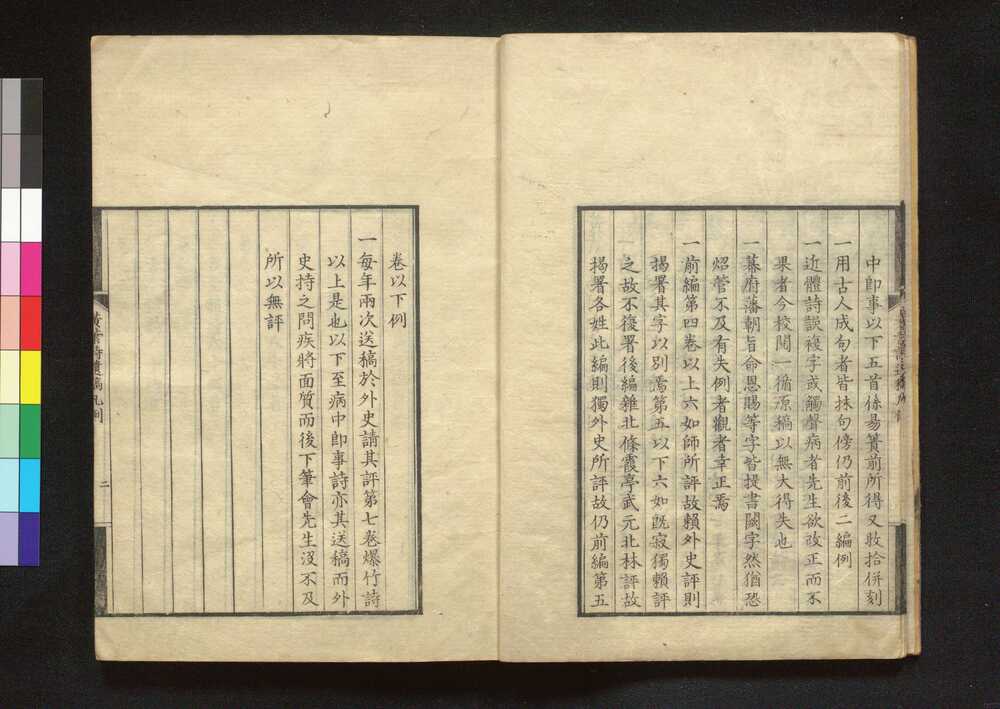 中卽事以下五首係易簀前所得又收拾併刻
一用古人成句者皆抹句傍仍前後二編例
一近體詩誤複字或觸聲病者先生欲改正而不
果者今校閱一循源稿以無大得失也
一幕府藩朝旨命恩賜等字皆擡書闕字然猶恐
炤管不及有失例者觀者幸正焉
一前編第四卷以上六如師所評故賴外史評則
揭署其字以別焉第五以下六如旣寂獨賴評
之故不復署後編雜北條霞亭武元北林評故
揭署各姓此編則獨外史所評故仍前編第五
卷以下例
一每年兩次送稿於外史請其評第七卷爆竹詩
以上是也以下至病中卽事詩亦其送稿而外
史持之問疾將面質而後下筆會先生沒不及
所以無評
黃葉詩遺稿凡例
二